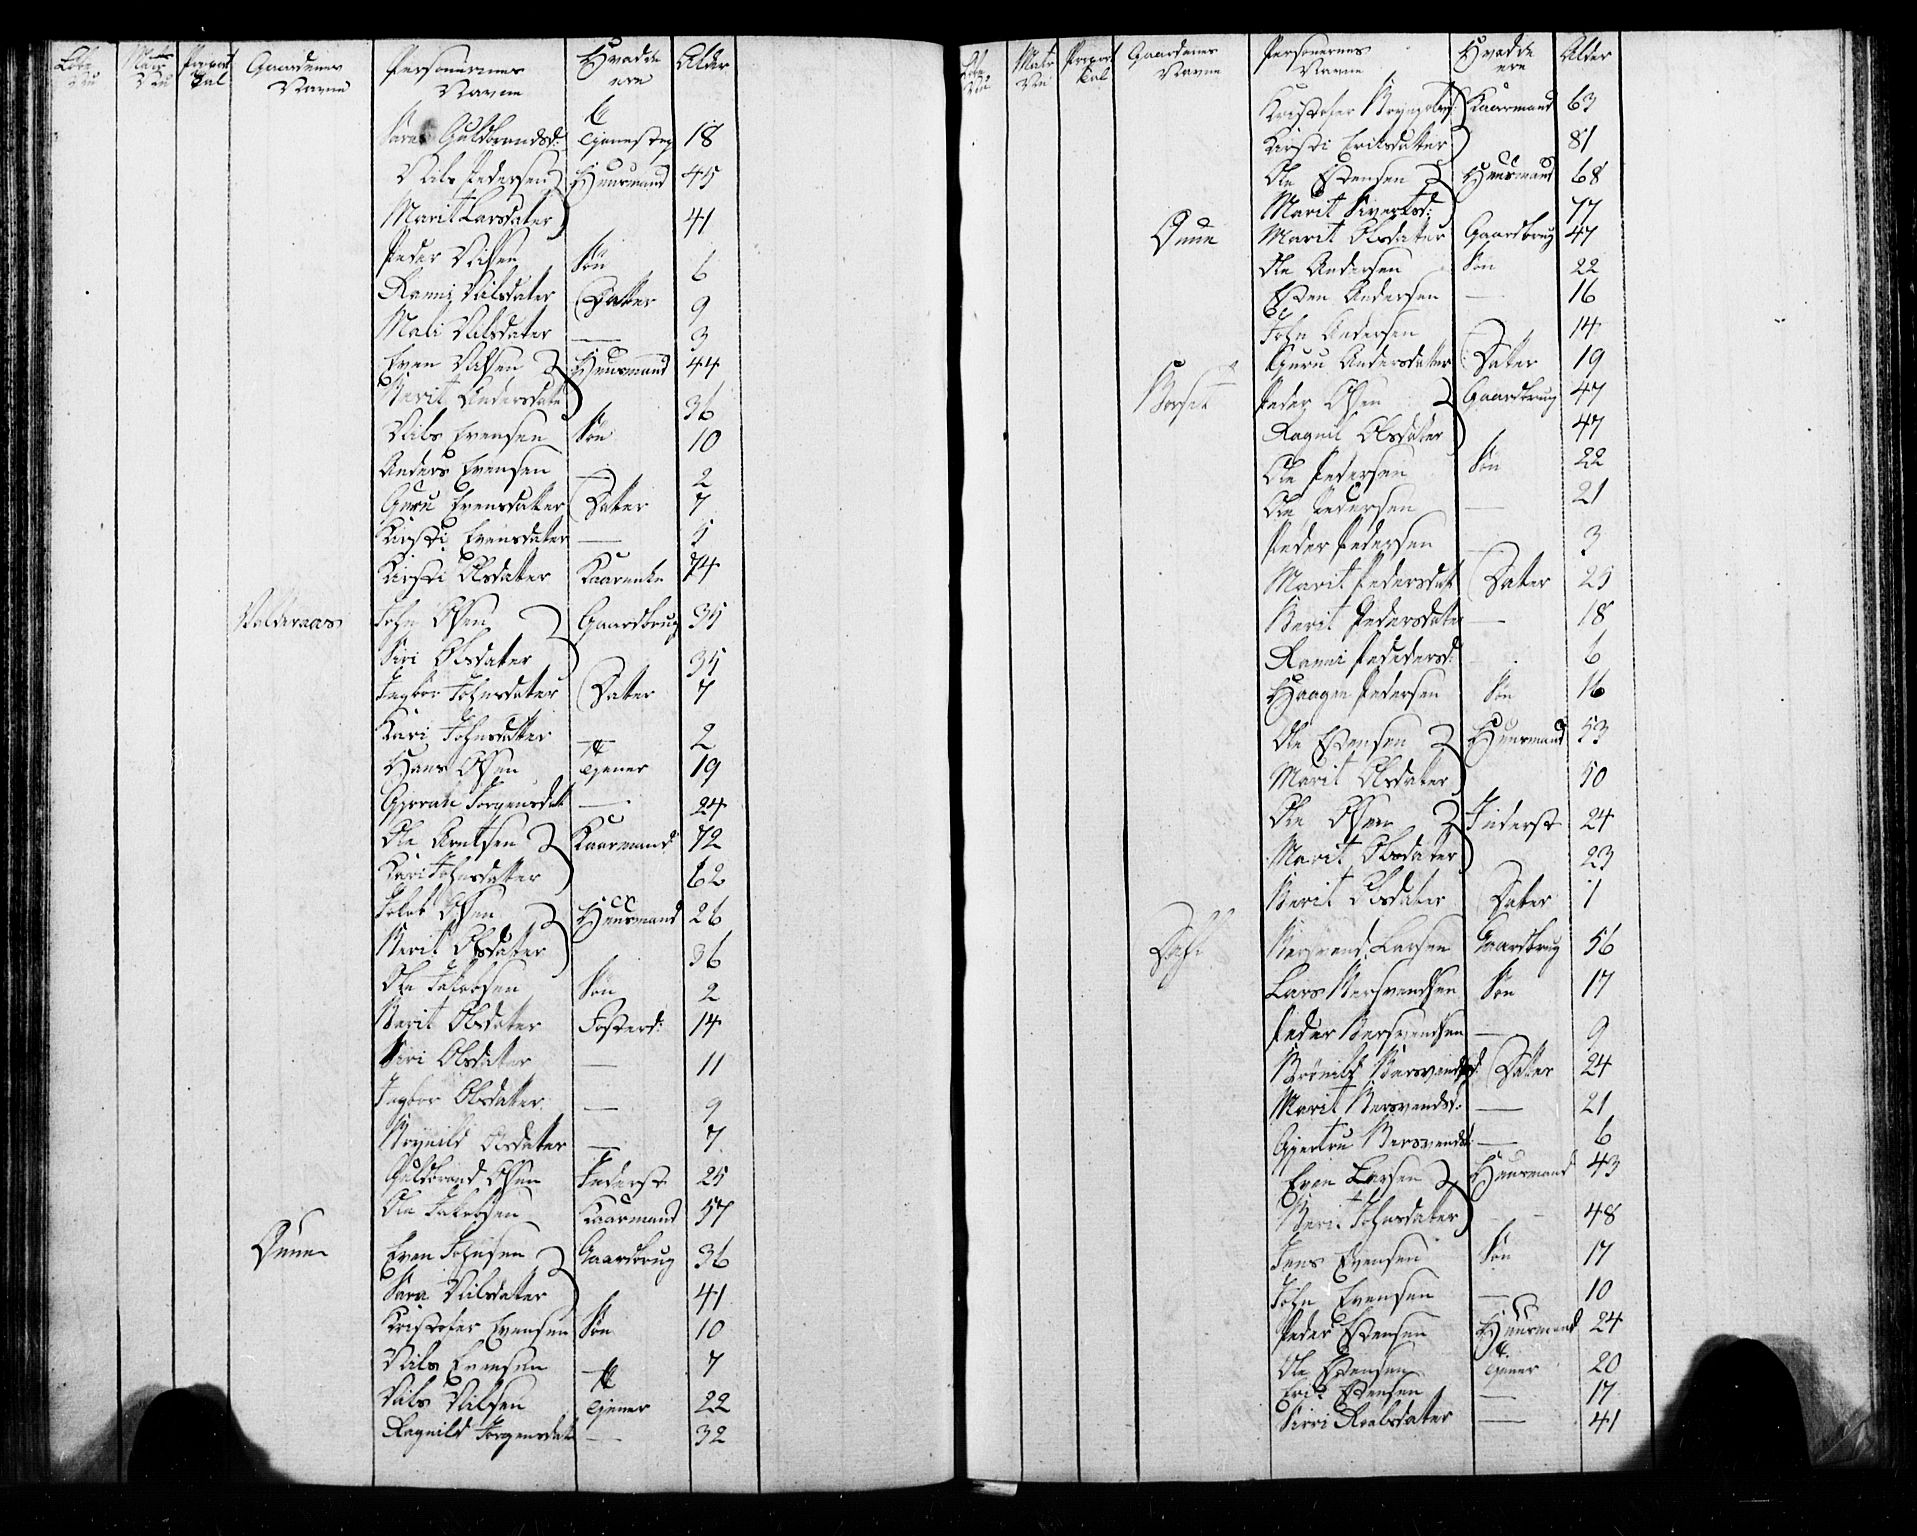 Løbe No Matr No Proport tal Gaardenes Navne Personernes Navne Hvad de ere Alder
Sara Guldbrandsd: Tjenestep 18
Nils Pedersen Huusmand 45
Marit Larsdatter 41
Peder Nilsen Søn 6
Ranni Nilsdatter Datter 9
Mali Nilsdatter — 3
Even Nilsen Huusmand 44
Berit Andersdatt 36
Nils Evensen Søn 10
Anders Evensen — 2
Guru Evensdatter Datter 7
Kirsti Evensdatter — 5
Kirsti Olsdatter Kaarenke 74
Valderaas John Olsen Gaardbrug 35
Siri Olsdatter 35
Ingbor Johnsdatter Datter 7
Kari Johnsdatter — 2
Hans Olsen Tjener 19
Jorgensdatt — 24
Ole Arntsen Kaarmand 72
Kari Johnsdatter 62
Jakob Olsen Huusmand 26
Berit Olsdatter 36
Ole Jakobsen Søn 2
Berit Olsdatter Fosterd: 14
Siri Olsdatter — 11
Ingbor Olsdatter — 9
Brynild Olsdatter — 7
Guldbrand Olsen Inderst 25
Ole Jakobsen Kaarmand 57
Even Johnsen Gaardbrug 36
Sara Nilsdatter 41
Kristofer Evensen Søn 10
Nils Evensen — 7
Nils Nilsen Tjener 22
Ragnild Jorgensdatt — 32
Løbe No Matr No Proport tal Gaardenes Navne Personernes Navne Hvad de ere Alder
Kristofer Kaarmand 63
Kirsti Eriksdatter 81
Ole Estensen Huusmand 68
Marit Sivertsd: 77
Marit Olsdatter Gaardbrug 47
Ole Andersen Søn 22
Esten Andersen — 16
John Andersen 14
Guru Andersdatter Datter 19
Peder Olsen Gaardbrug 47
Ragnil Olsdatter 47
Ole Pedersen Søn 22
Ole Pedersen — 21
Peder Pedersen — 3
Marit Pedersdat Datter 25
Berit Pedersdatter — 18
Ranni Pededersd: 6
Haagen Pedersen Søn 16
Ole Estensen Huusmand 53
Marit Olsdatter 50
Ole Olsen Inderst 24
Marit Olsdatter 23
Berit Olsdatter Datter 1
Bersvend Larsen Gaardbrug 56
Lars Bersvendsen Søn 17
Peder Bersvendsen — 9
Brønild Bersvendsd: Datter 24
Marit Bersvendsd: — 21
Gjertru Bersvendsd: — 6
Even Larsen Huusmand 43
Berit Johnsdatter 48
Jens Evensen Søn 17
John Evensen — 10
Peder Estensen Huusmand 24
Ole Estensen Tjener 20
Eric Estensen — 17
Sirri Roalsdatter — 41